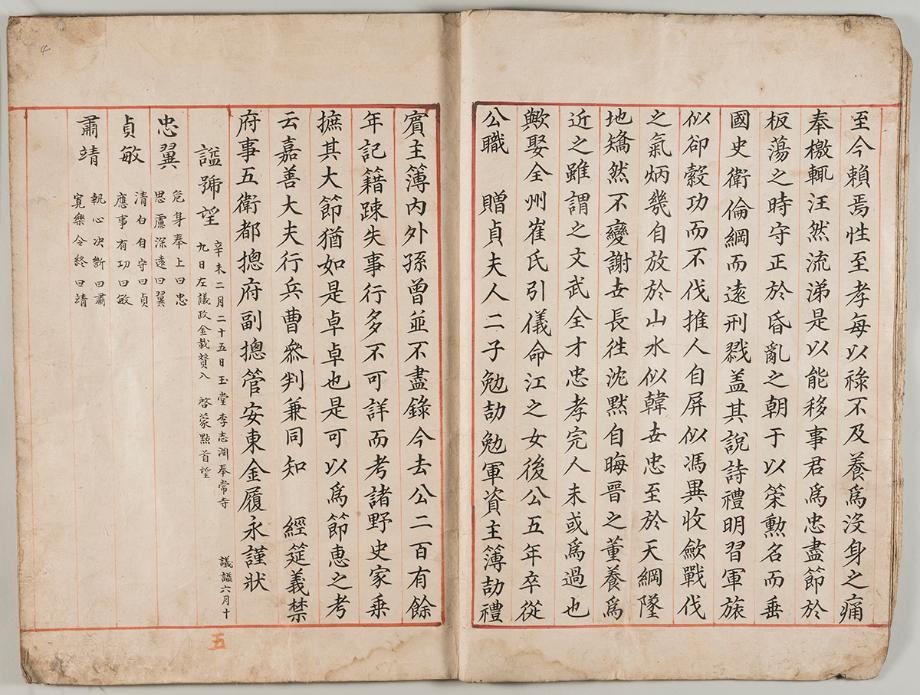 至今賴焉性至孝每以祿不及養爲沒身之痛
奉檄輒汪然流涕是以能移事君爲忠盡節於
板蕩之時守正於昏亂之朝于以策勳名而垂
國史衛倫綱而遠刑戮盖其說詩禮明習軍旅
似卻縠功而不伐推人自屏似馮異收歛戰伐
之氣炳幾自放於山水似韓世忠至於天綱墜
地矯然不變謝世長徃沈默自晦晋之董養爲
近之雖謂之文武全才忠孝完人未或爲過也
歟娶全州崔氏引儀命江之女後公五年卒從
公職 贈貞夫人二子勉劼勉軍資主簿劼禮
賓主簿內外孫曾並不盡錄今去公二百有餘
年記籍踈失事行多不可詳而考諸野史家乘
摭其大節猶如是卓卓也是可以爲節惠之考
云嘉善大夫行兵曹叅判兼同知 經筵義禁
府事五衛都摠府副摠管安東金履永謹狀
謚號望 辛未二月二十五日玉堂李志淵奉常寺 議謚六月十
九日左議政金載瓚入 啓蒙點首望
忠翼 危身奉上曰忠
思慮深遠曰翼
貞敏 清白自守曰貞
應事有功曰敏
肅靖 執心決斷曰肅
寬樂令終曰靖
五